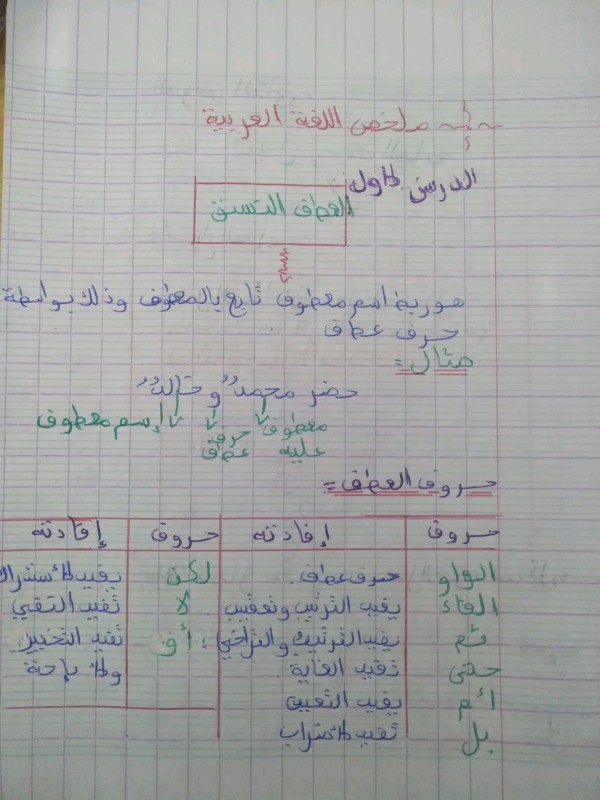 ملخص اللغة العربية
الدرس الأول
العطف النسق
هو ربط اسم معطوف تابع بالمعطوف وذلك بواسطة
حرف عطف .
مثال =
حضر محمدٌ وخالدٌ
معطوف عليه
حرف عطف
إسم معطوف
حروف العطف =
حروف إفادته حروف إفادته
الواو حرف عطف . لكن يفيد الأستدراك
الفاء يفيب الترتيب وتعقيب لا تفيد النفي
ثم يفيد الترتيب والتراخي . أو تفيد التخيير
حتى تفيد الغاية . والإباحة
أم يفيب التعيين
بل تفيد الأضراب